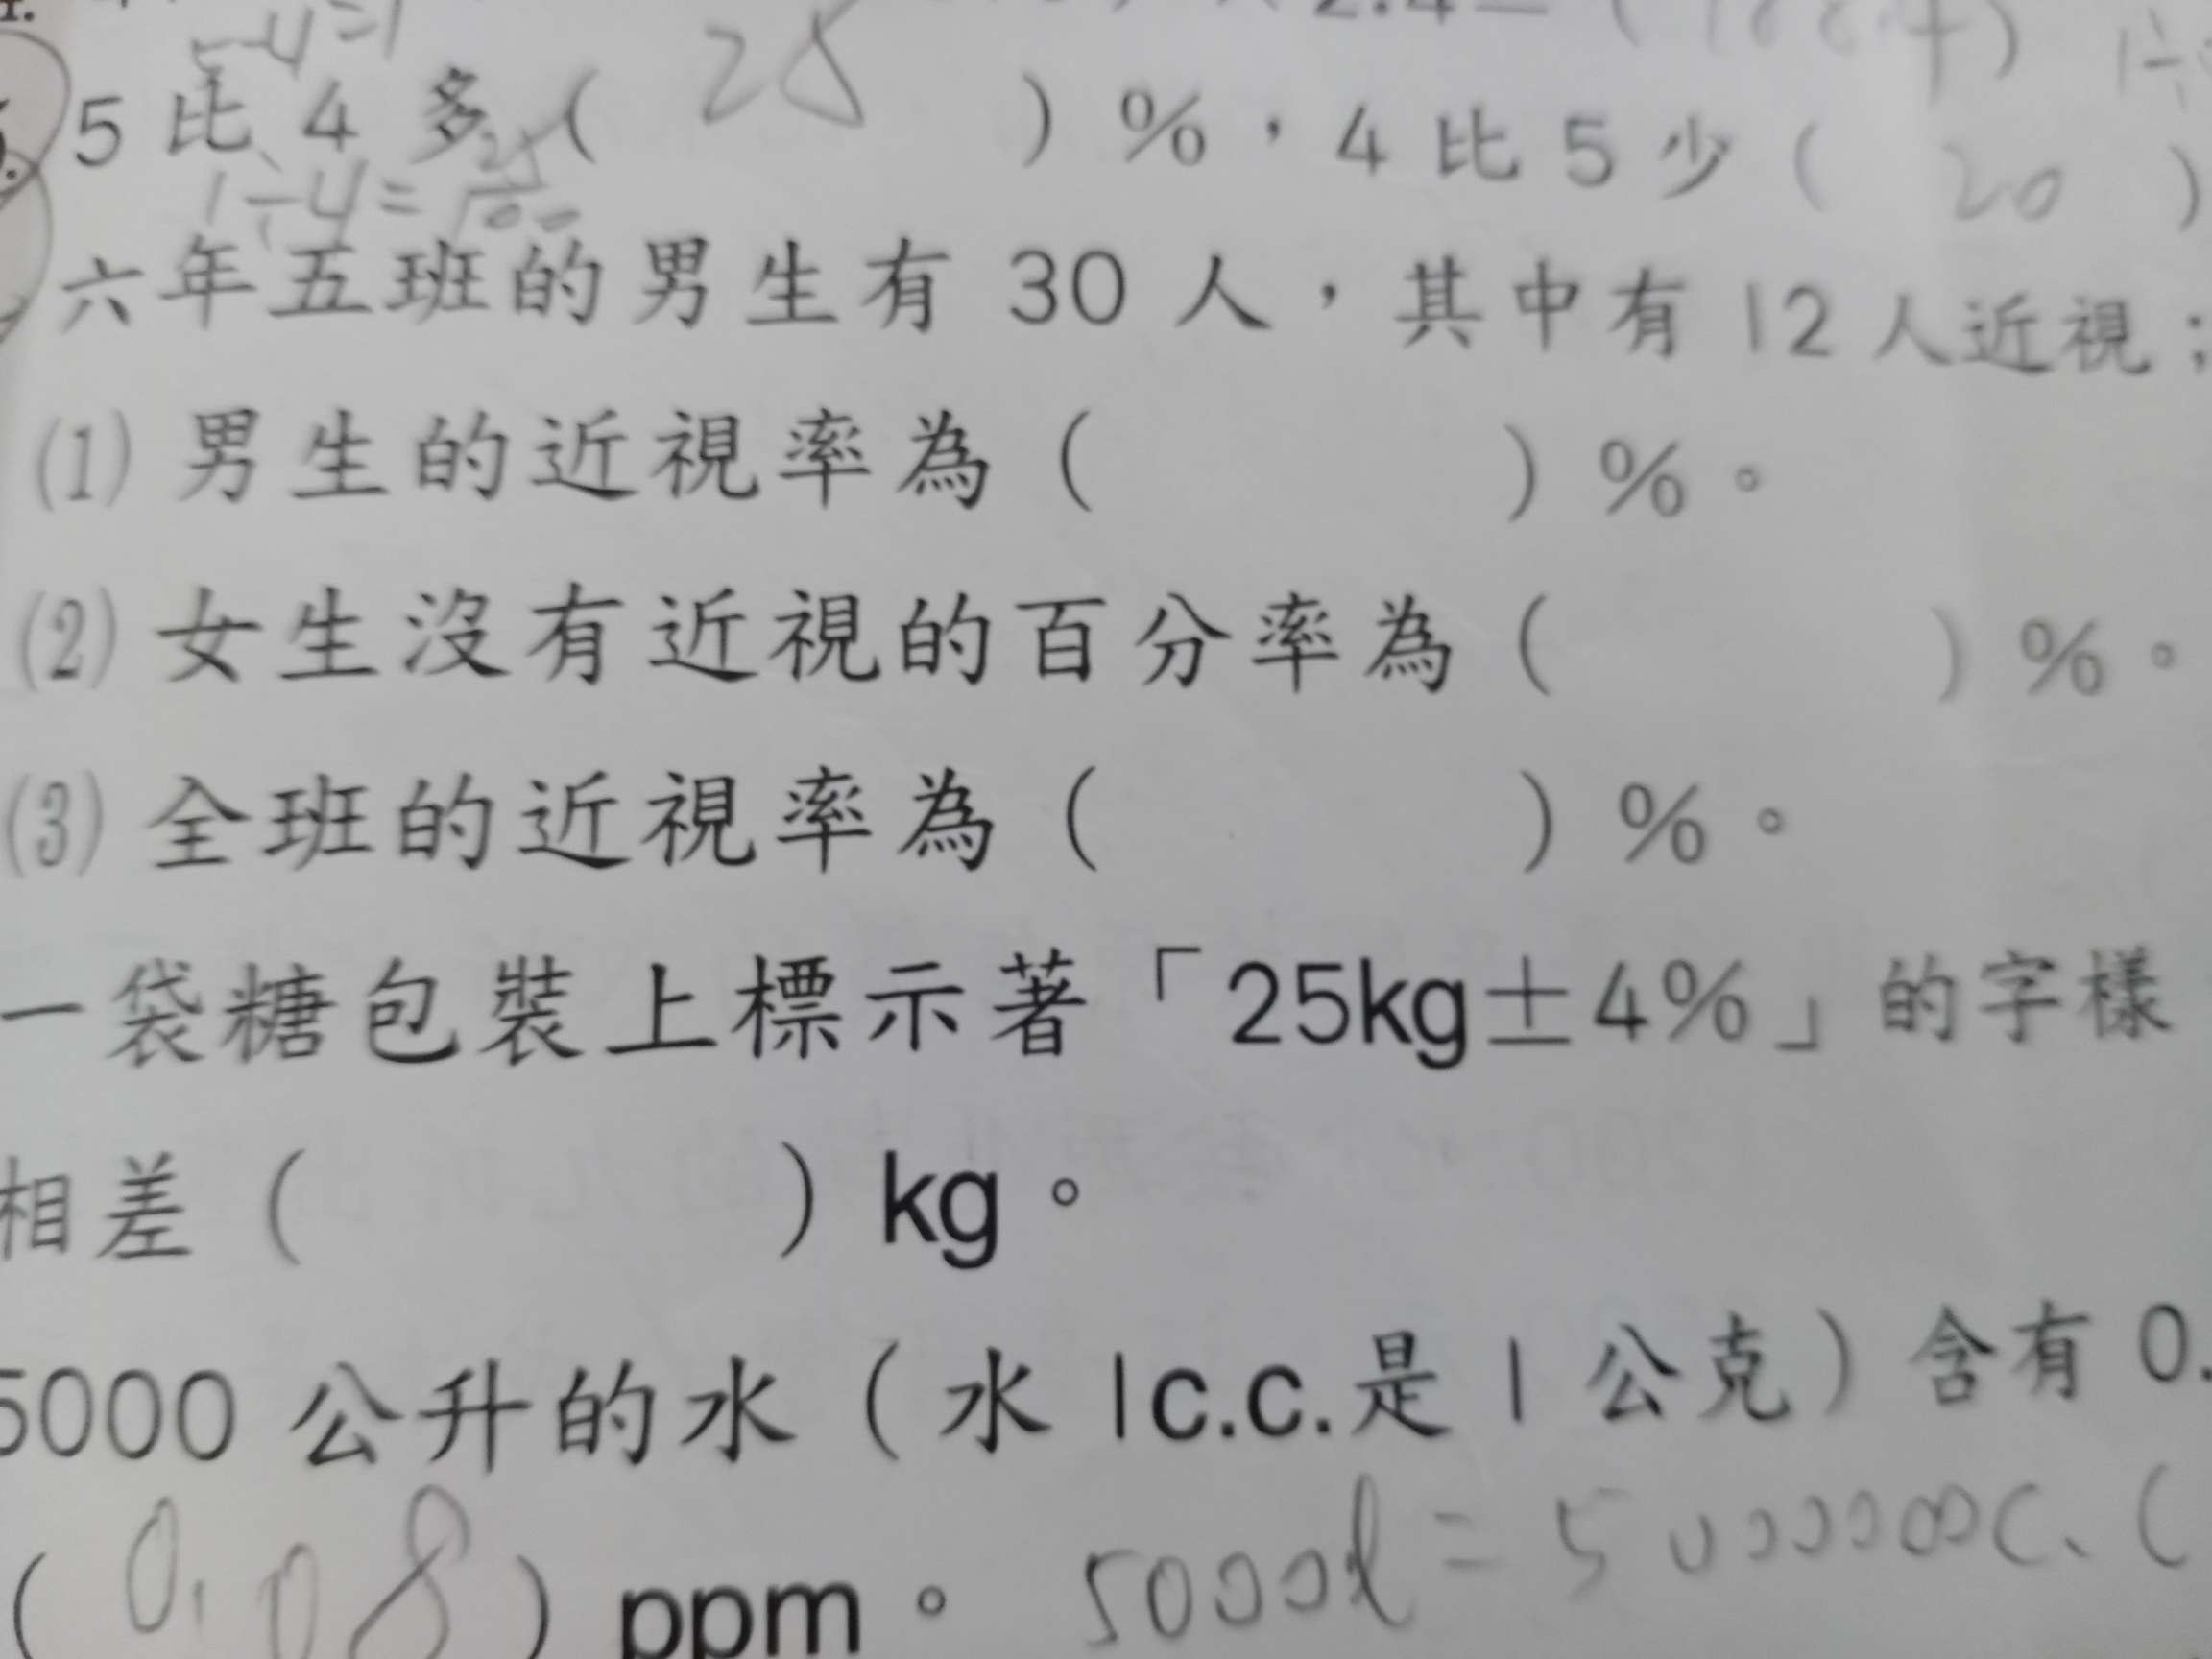 5-4=1
5 比 4 多（ 25 ）%，4 比 5 少（ 20 ）
1÷4=25/100
六年五班的男生有 30 人，其中有 12 人近視；
(1) 男生的近視率為（ ）%。
(2) 女生沒有近視的百分率為（ ）%。
(3) 全班的近視率為（ ）%。
一袋糖包裝上標示著「25kg±4%」的字樣
相差（ ）kg。
5000 公升的水（水 1c.c.是 1 公克）含有 0.
（ 0.08 ）ppm。 5000l=5000000c.c